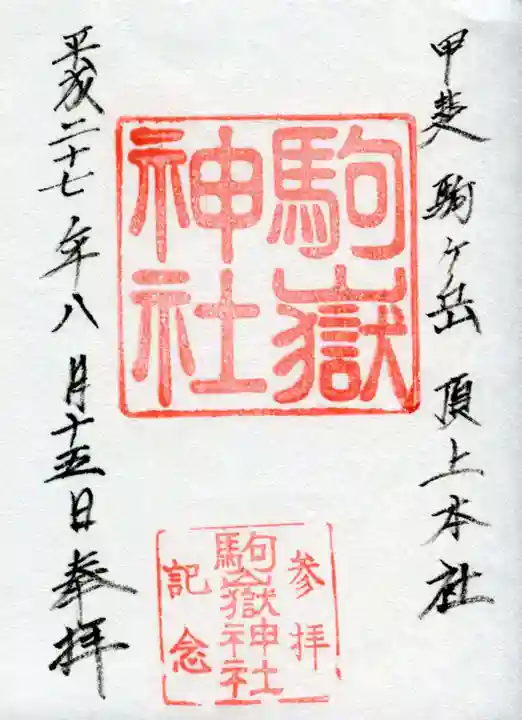 甲斐駒ヶ岳頂上本社
駒嶽
神社
参拝
駒嶽神社
記念
平成二十七年八月十五日奉拝